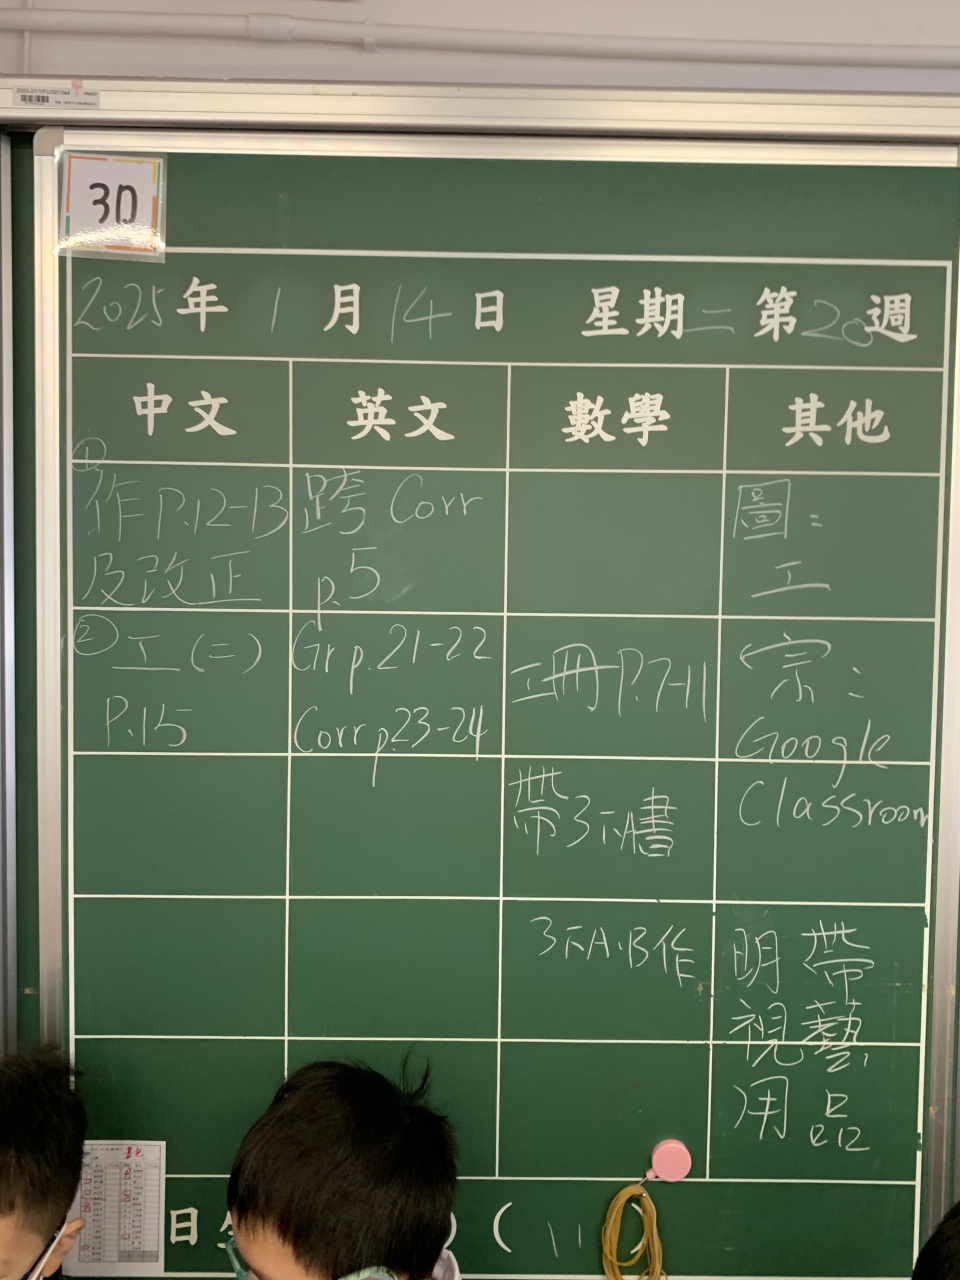 3D
2025年 1月14日 星期二 第20週
中文 英文 數學 其他
①
作P.12-13
及改正
②工(二)
P.15
跨 Corr
p.5
Gr p.21-22
Corr p.23-24
工冊P.7-11
帶3下A書
3下A.B作
圖：
工
宗：
Google
Classroom
明 帶
視藝
用品
日
( 11 )